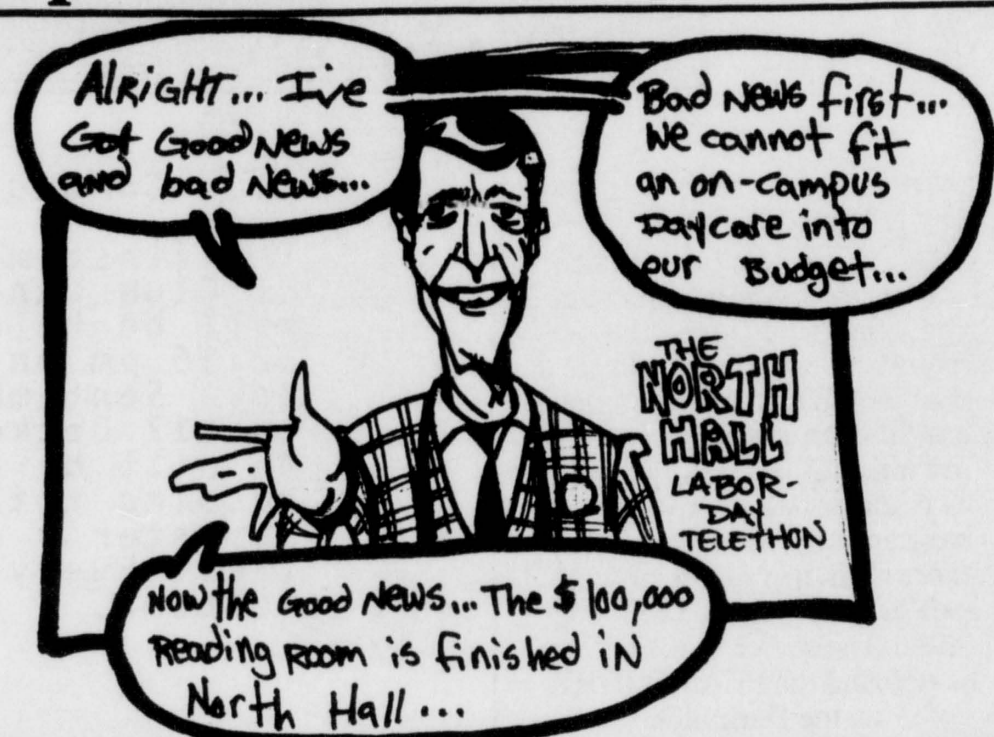 AlRiGHT... I've
Got Good News
and bad News...
Bad News first...
We cannot fit
an on-campus
Daycare into
our Budget...
THE
NORTH
HALL
LABOR-
DAY
TELETHON
Now the Good News... The $100,000
Reading Room is finished iN
North Hall...